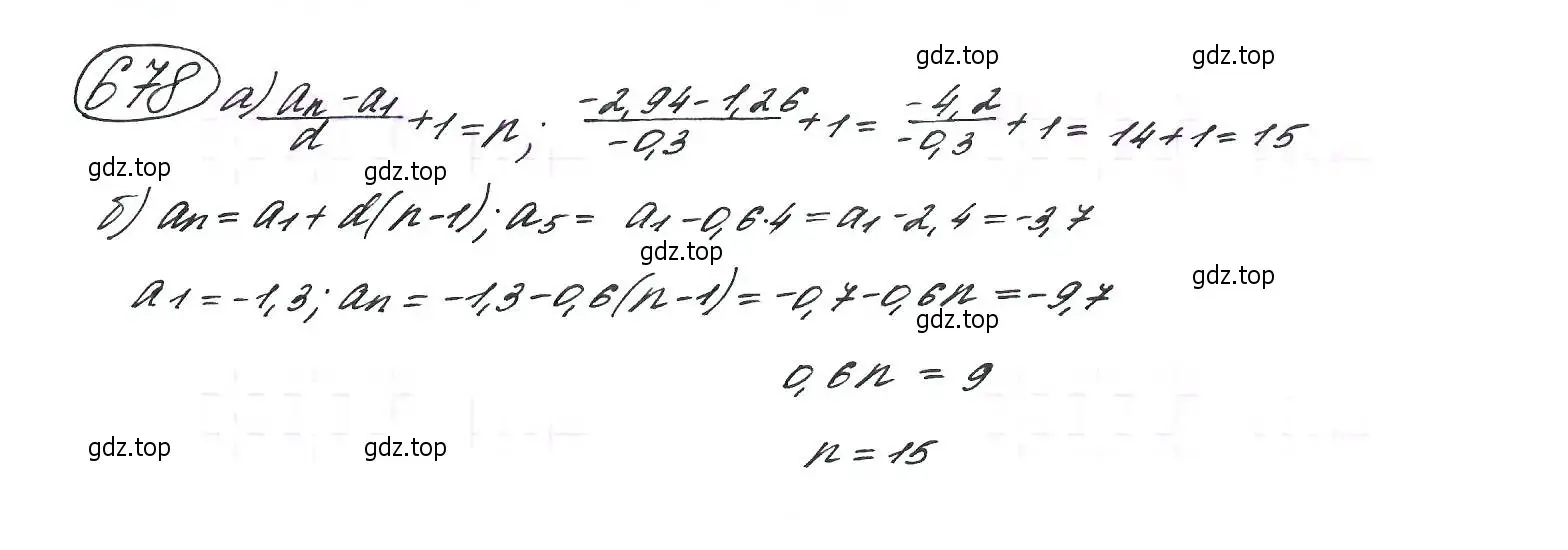 gdz.top gdz.top
678 а) (aₙ - a₁)/d + 1 = n; (-2,94 - 1,26)/(-0,3) + 1 = (-4,2)/(-0,3) + 1 = 14 + 1 = 15
gdz.top gdz.top
б) aₙ = a₁ + d(n-1); a₅ = a₁ - 0,6·4 = a₁ - 2,4 = -3,7
gdz.top gdz.top
a₁ = -1,3; aₙ = -1,3 - 0,6(n-1) = -0,7 - 0,6n = -9,7
gdz.top
0,6n = 9
gdz.top gdz.top
n = 15